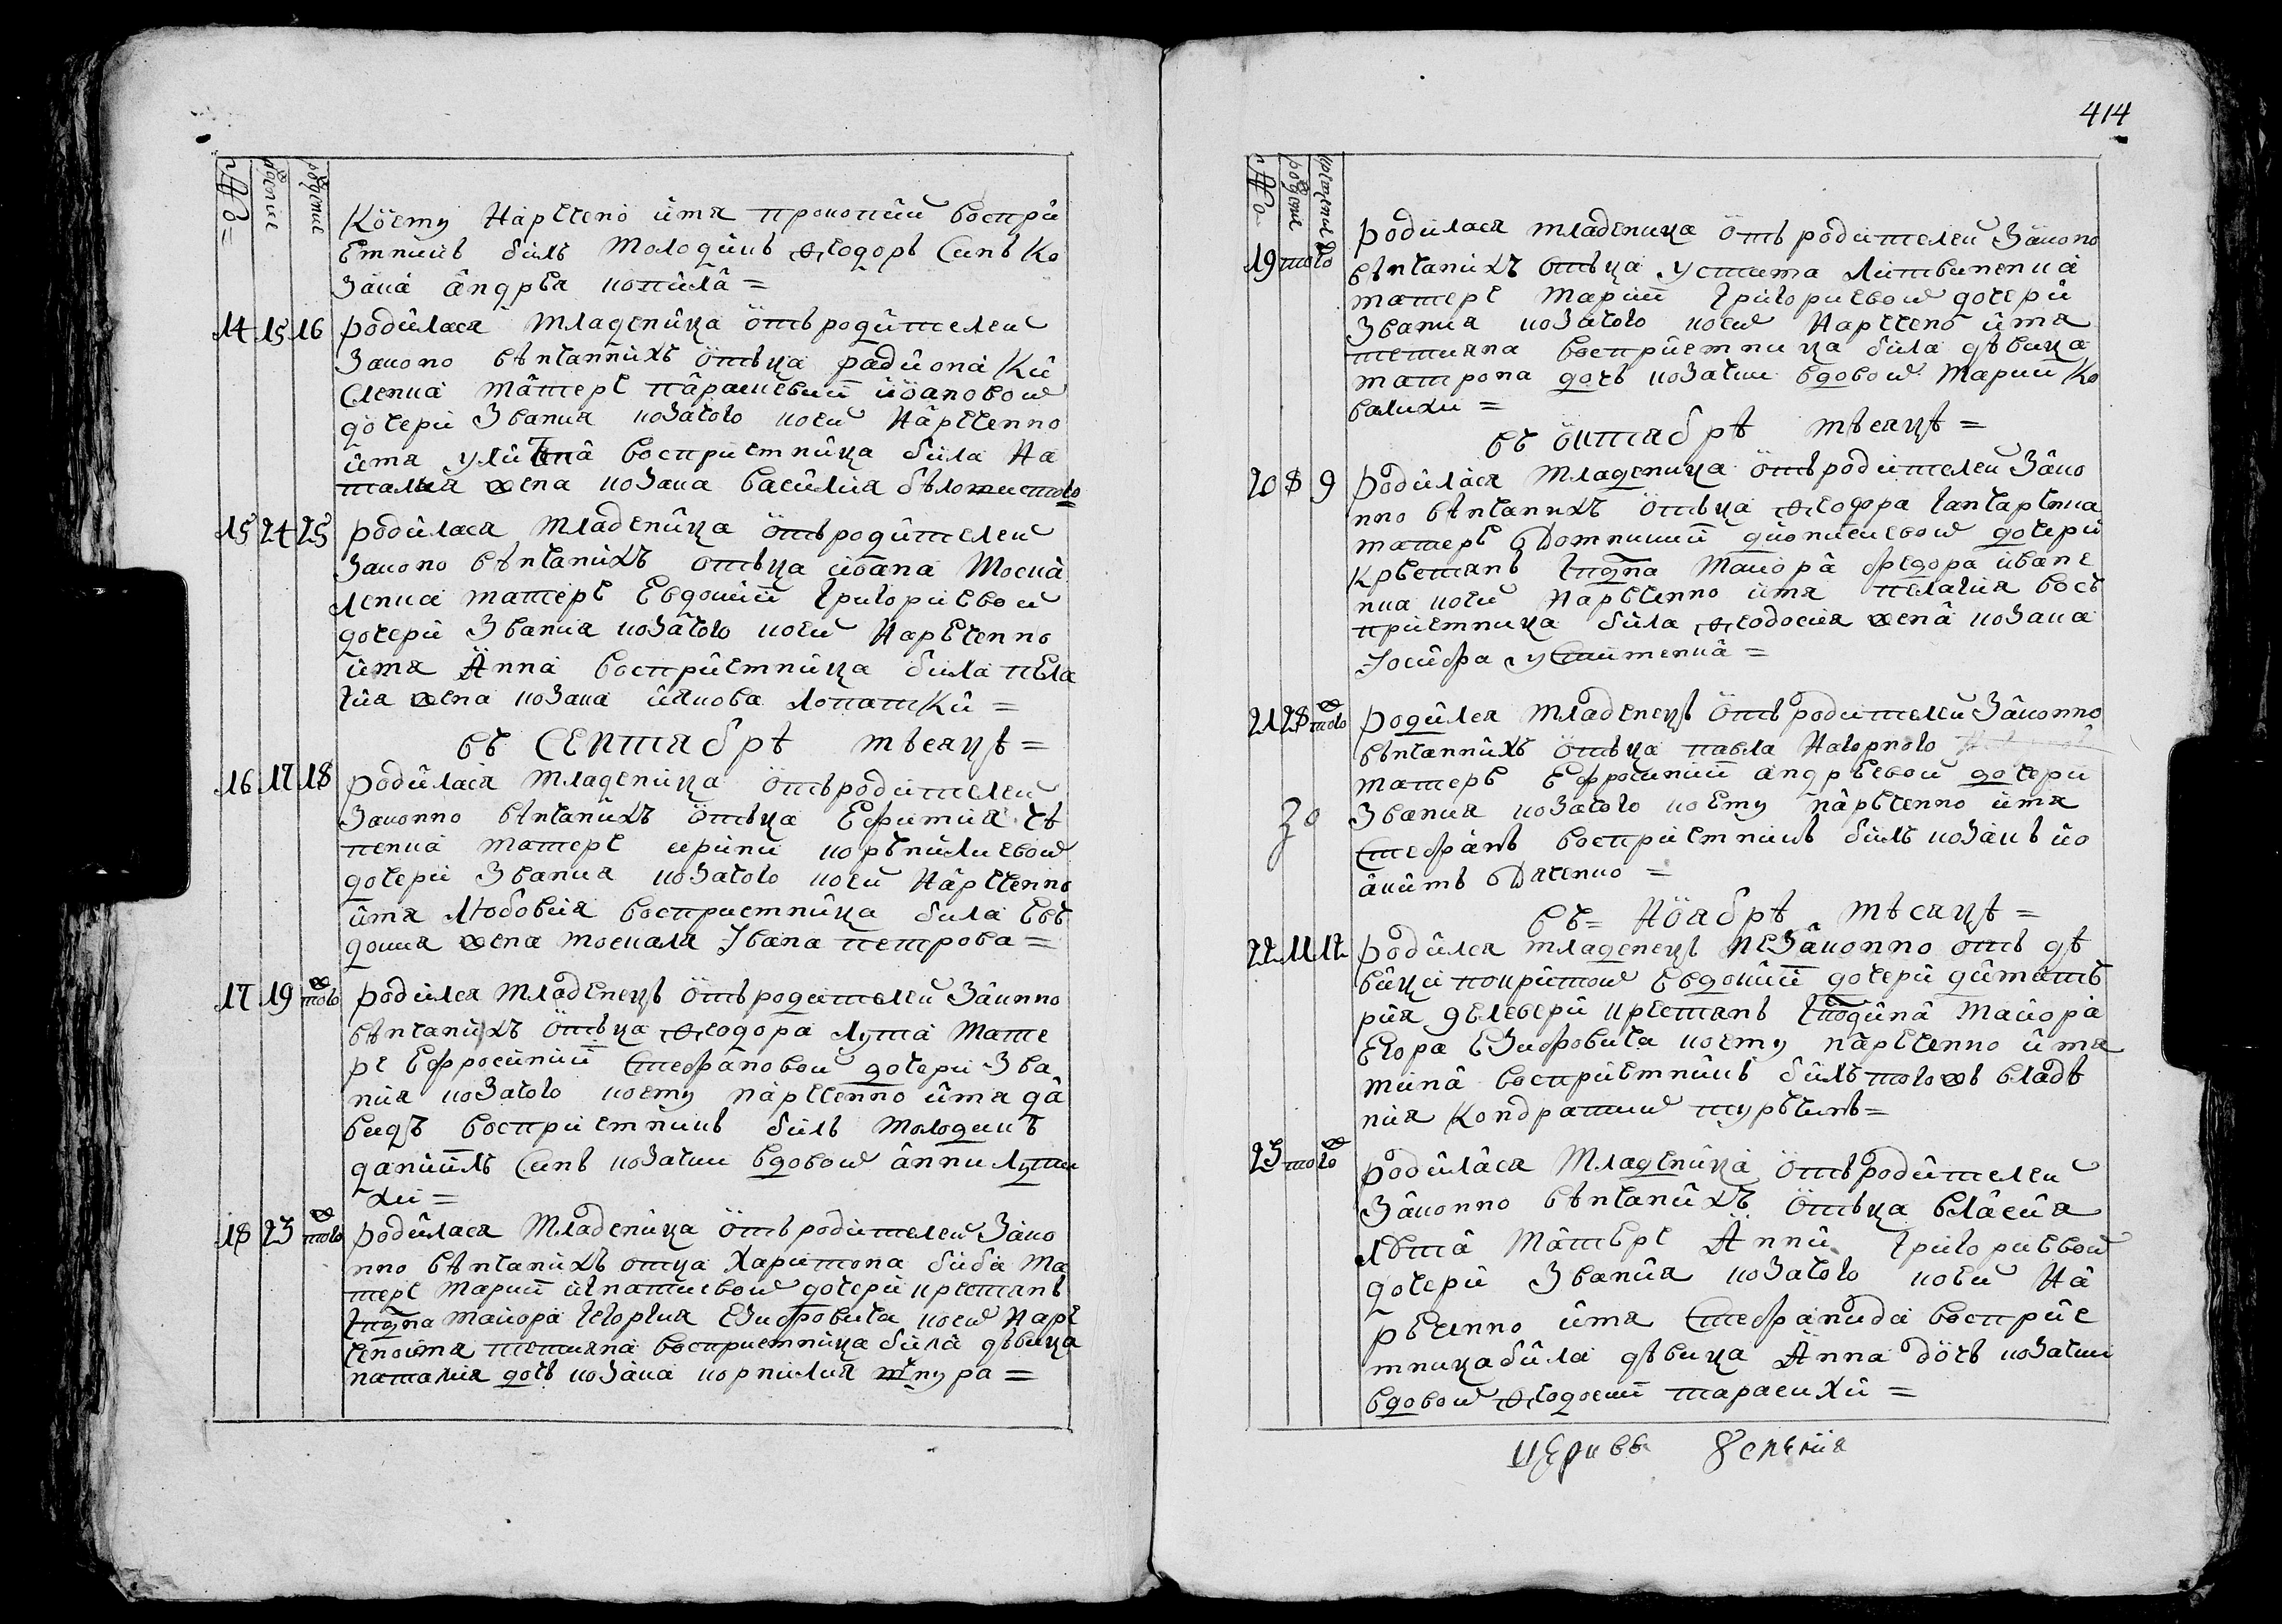 414
№
рождение
рождение
Коему нарѣчено имя прокопий воспри
емникъ билъ молодикъ Ѳеодоръ синъ ко
зака андрѣя копила =
14 15 16 родилася младеница отъ родителей
законо вѣнчаннихъ отъца радиона ки
сленка матере парашкевии иоановой
дочери звания козачого коей нарѣченно
имя улияна восприемница била на
талия жена козака василия бѣло
15 24 25 родилася младеница отъ родителей
законо вѣнчанихъ отъца иоана моска
ленка матерѣ Евдокии григориевой
дочери звания козачого коей нарѣченно
имя Анна восприемница била пела
гия жена козака иякова лопатки =
въ СЕПТЯБРѢ мѣсяцѣ =
16 17 18 родилася младеница отъ родителей
законно вѣнчанихъ отъца Ефимия че
пенка матерѣ ирини корънилиевой
дочери звания козачого коей нарѣченно
имя Любовия восприемница била Евъ
докия жена москаля Ивана петрова =
17 19 тогож родился младенецъ отъ родителей законно
вѣнчанихъ отъца Ѳеодора лута мате
ре Ефросинии Стефановой дочери зва
ния козачого коему нарѣченно имя да
видъ восприемникъ билъ молодикъ
даниилъ синъ козачки вдовой анни лути
хи =
18 23 тогож родилася младеница отъ родителей зако
нно вѣнчанихъ отца харитона биби ма
тере марии игнатиевой дочери крестянъ
гпдна маиора георгия Езифовича коей наре
чено имя тетияна восприемница била дѣвица
наталия дочь козака корнилия
№
рождение
крещение
19 тогож родилася младеница отъ родителей законо
вѣнчанихъ отъца устима литвиненка
матере марии григориевой дочери
звания козачого коей нарѣчено имя
тетияна восприемница била дѣвица
матрона дочь козачки вдовой марии ко
валихи =
въ октябрѣ мѣсяцѣ =
20 8 9 родилася младеница отъ родителей зако
нно вѣнчанихъ отъца Ѳеодора
матерѣ Домникии дионисиевой дочери
крѣстянъ гпдна маиора федора иване
нка коей нарѣченно имя пелагия восъ
приемница била Ѳеодосия жена козака
Иосифа устименка =
21 28 тогож родился младенецъ отъ родителей законно
вѣнчаннихъ отъца павла нагорного
матерѣ Ефросинии андрѣевой дочери
звания козачого коему нарѣченно имя
Стефанъ восприемникъ билъ козакъ ио
акимъ Дяченко =
въ= Ноябрѣ мѣсяцѣ =
22 11 12 родился младенецъ незаконно отъ дѣ
вики покритой Евдокии дочери диматъ
рия крестянъ гподина маиора
Егора Езифовича коему нарѣченно имя
мина восприемникъ билъ тогожъ владѣ
ния кондратий
23 тогож родилася младеница отъ родителей
законно вѣнчанихъ отъца власия
матѣре Анни григориевой
дочери звания козачого коей на
рѣченно имя Стефанида восприе
мница била дѣвица Анна дочь козачки
вдовой Ѳеодосии тарасихи =
церкви